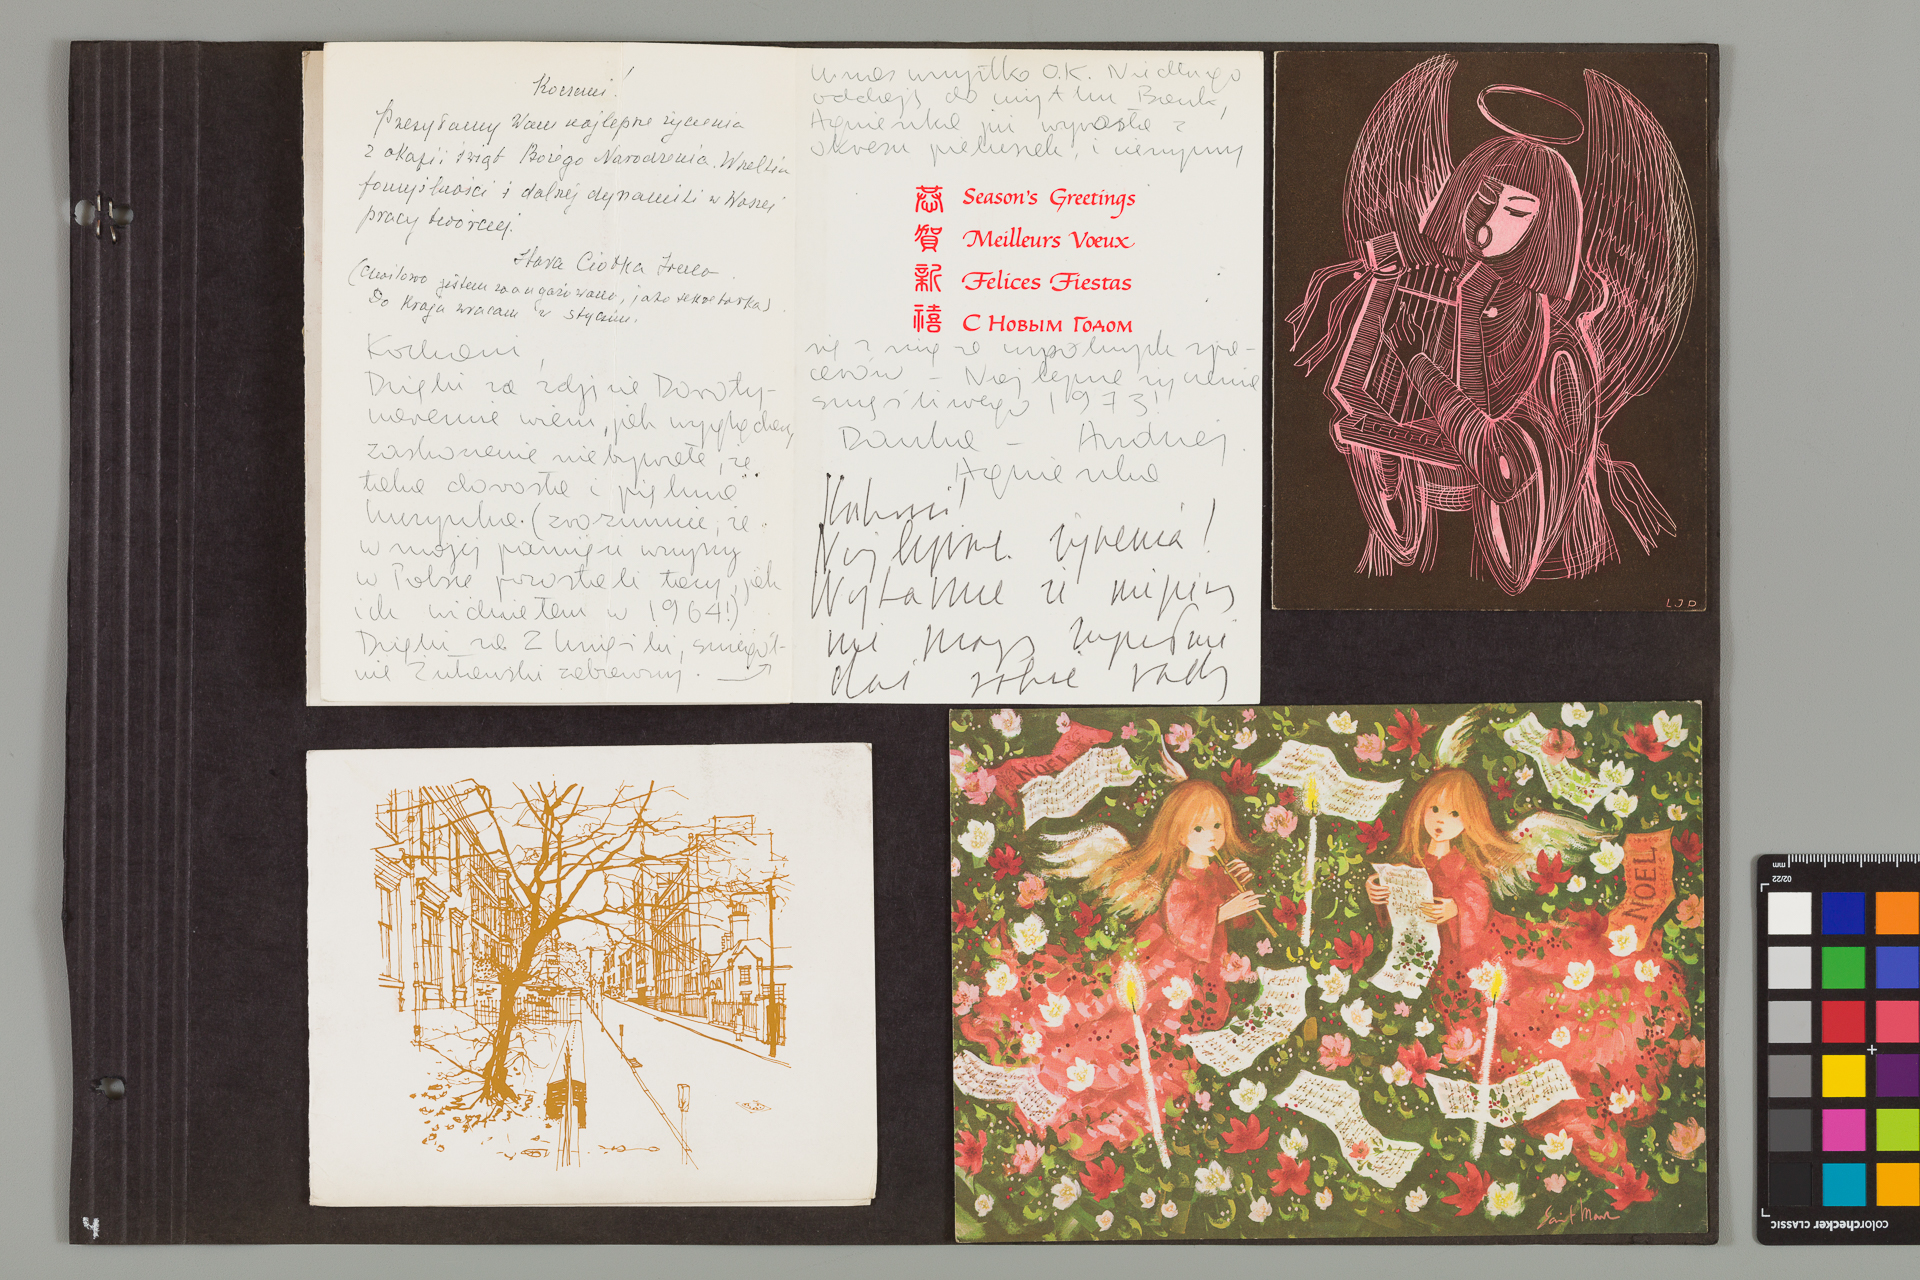 Kochani!
Przesyłamy Wam najlepsze życzenia
z okazji świąt Bożego Narodzenia. Wszelkiej
pomyślności i dalszej dynamiki w Waszej
pracy twórczej.
Stara Ciotka Irena
(Chwilowo jestem zaangażowana, jako sekretarka)
Do Kraju wracam w styczniu.
Kochani,
Dzięki za zdjęcie Doroty-
nareszcie wiem, jak wygląda,
zaskoczenie niebywałe, że
taka dorosła i "piękna"
(zrozumcie, że
w mojej pamięci wszyscy
w Polsce pozostali tacy, jak
ich widziałem w 1964!)
Dzięki za 2 książki, szczegól-
nie Żukowski zabawny.
U nas wszystko O.K. Niedługo
oddaję do Banku,
Agnieszka już wyrosła z
okresu pieluszek, i cieszymy
恭 Season's Greetings
賀 Meilleurs Vœux
新 Felices Fiestas
禧 С Новым Годом
się z nią ze wspólnych spa-
cerów – Najlepsze życzenia
szczęśliwego 1973!!
Danka – Andrzej
Agnieszka
Kochani!
Najlepsze życzenia!
Wybaczcie że nie piszę
nie mogę zupełnie
dać sobie rady
LJD
NOEL
NOEL
Saint Mane
4
mm
02/22
colorchecker CLASSIC